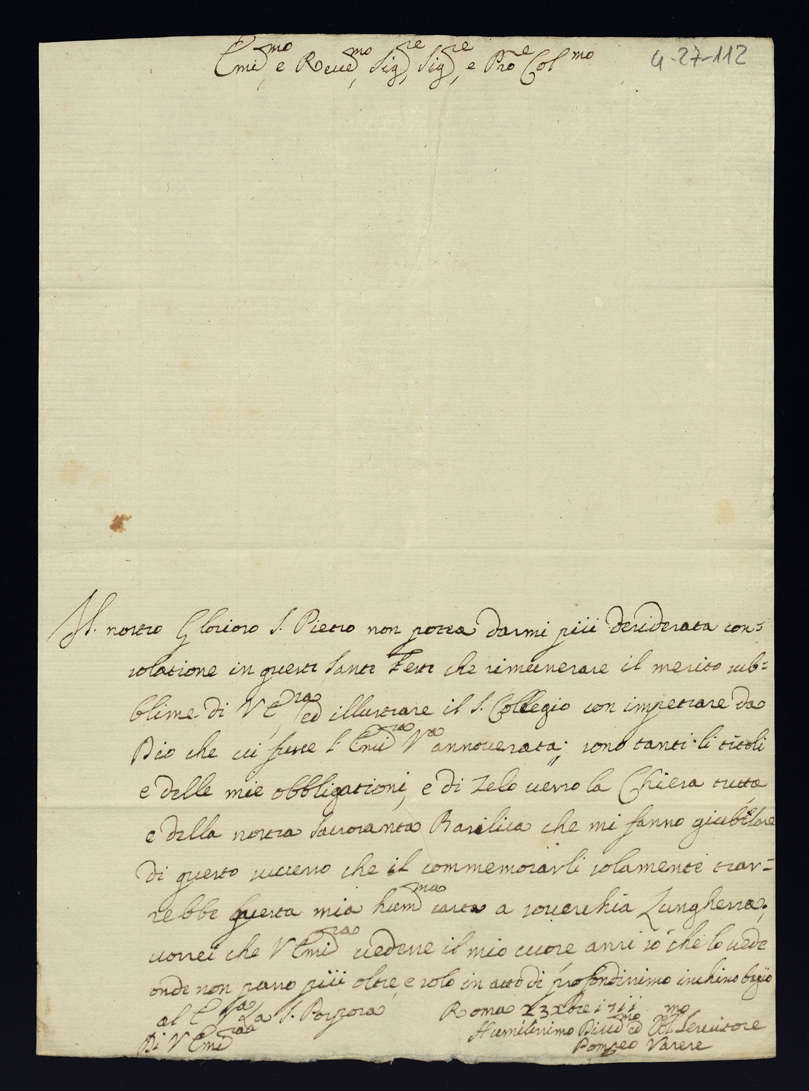 Emi^mo e Reue^mo Sig^re Sig^re e Pro^e Col^mo
4-27-112
Il nostro Glorioso S. Pietro non potea darmi più desiderata con=
solatione in questi Santi Festi che rimunerare il merito sub=
blime di V E^za ed illustrare il S. Collegio con impetrare da
Dio che ui fusse l'Emi^za V^a annouerata; sono tanti li titoli
e delle mie obbligationi, e di Zelo uerso la Chiesa tutta
e della nostra Sacrosanta Basilica che mi fanno giubilare
di questo successo che il commemorarli solamente trar=
rebbe questa mia hum^ma carta a souerchia Lunghezza;
uorrei che V Emi^za uedesse il mio cuore anzi so che lo uede
onde non passo più oltre, e solo in atto di profondissimo inchino bagio
al E V^ra La S. Porpora
Di V Emi^za
Roma 23 xbre 1711
Humilissimo Diuo^mo ed Obl^mo Seruitore
Pompeo Varese